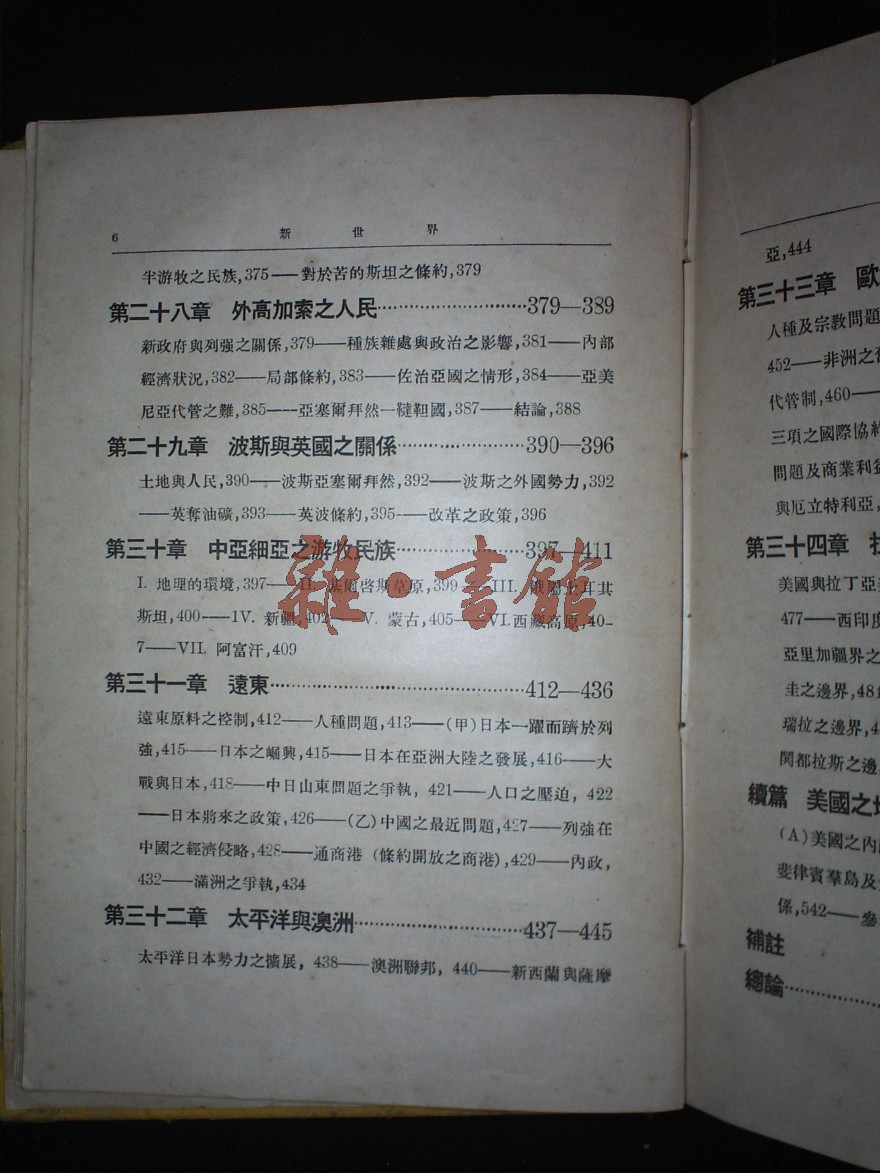 6 新世界
半游牧之民族,375——對於苦的斯坦之條約,379
第二十八章 外高加索之人民……………………379—389
新政府與列强之關係,379——種族雜處與政治之影響,381——內部
經濟狀況,382——局部條約,383——佐治亞國之情形,384——亞美
尼亞代管之難,385——亞塞爾拜然一韃靼國,387——結論,388
第二十九章 波斯與英國之關係…………………390—396
土地與人民,390——波斯亞塞爾拜然,392——波斯之外國勢力,392
——英奪油礦,393——英波條約,395——改革之政策,396
第三十章 中亞細亞之游牧民族…………………397—411
I. 地理的環境,397——II. 基爾啓斯草原,399——III. 俄屬土耳其
斯坦,400——IV. 新疆,402——V. 蒙古,405——VI.西藏高原,40-
7——VII. 阿富汗,409
第三十一章 遠東……………………………………412—436
遠東原料之控制,412——人種問題,413——(甲)日本一躍而躋於列
強,415——日本之崛興,415——日本在亞洲大陸之發展,416——大
戰與日本,418——中日山東問題之爭執, 421——人口之壓迫, 422
——日本將來之政策,426——(乙)中國之最近問題,427——列強在
中國之經濟侵略,428——通商港 (條約開放之商港),429——內政,
432——滿洲之爭執,434
第三十二章 太平洋與澳洲………………………437—445
太平洋日本勢力之擴展, 438——澳洲聯邦, 440——新西蘭與薩摩
亞,444
第三十三章 歐
人種及宗教問題
452——非洲之
代管制,460——
三項之國際協約
問題及商業利益
與厄立特利亞,
第三十四章 拉
美國與拉丁亞美
477——西印度
亞里加疆界之
圭之邊界,48
瑞拉之邊界,4
閧都拉斯之邊
續篇 美國之
(A)美國之內
斐律賓羣島及
係,542——參
補註
總論…………
雜·書館